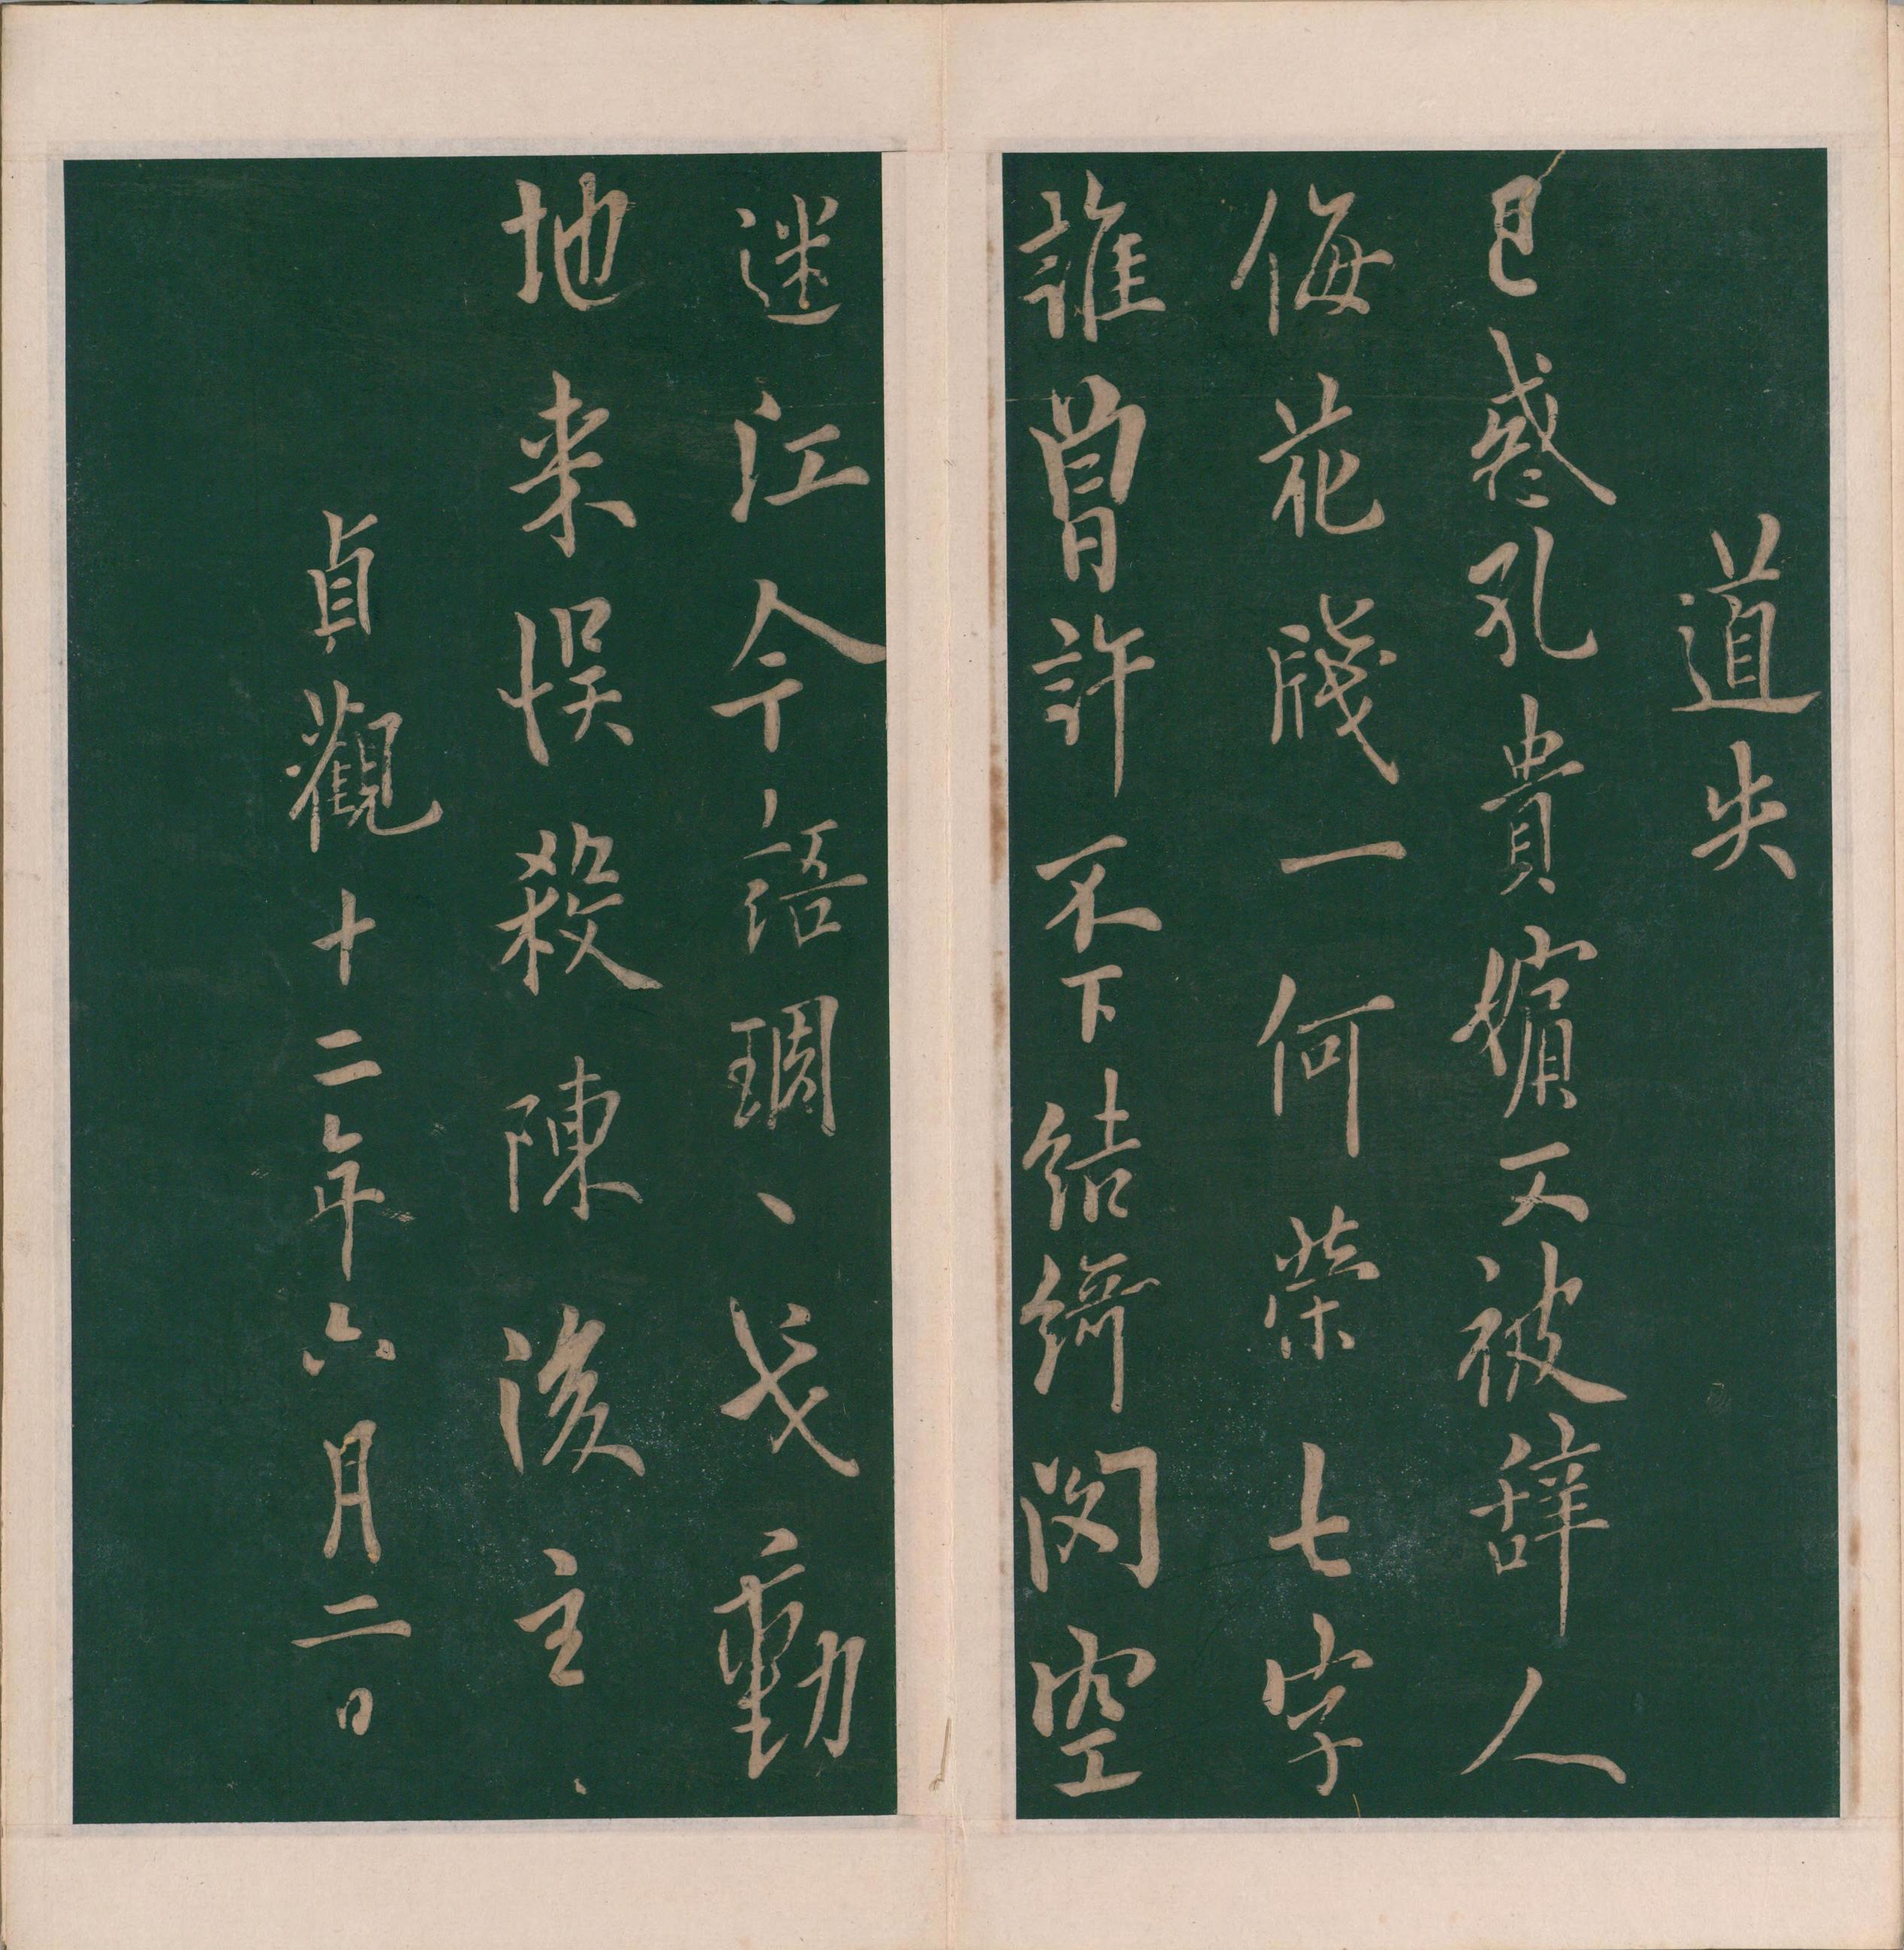 道失
已惑孔貴嬪又被辞人
侮花牋一何榮七字
誰曾許不下結綺閣空
迷江令語琱、戈動
地来悮殺陳後主、
貞觀十二年六月二日